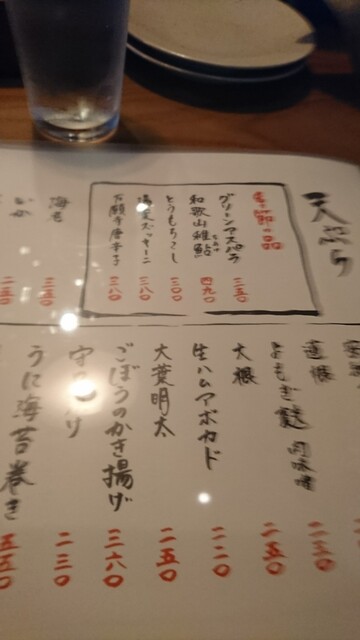 天ぷら
季節の品
グリーンアスパラ 三五〇
和歌山稚鮎 四九〇
とうもろこし 三〇〇
ズッキーニ 三八〇
万願寺唐辛子 三〇〇
海老 三五〇
いか 二五〇
蓮根 二三〇
よもぎ麩 肉味噌 二五〇
大根 二二〇
生ハムアボカド
大葉明太 二五〇
ごぼうのかき揚げ 三六〇
二三〇
うに海苔巻き 五五〇